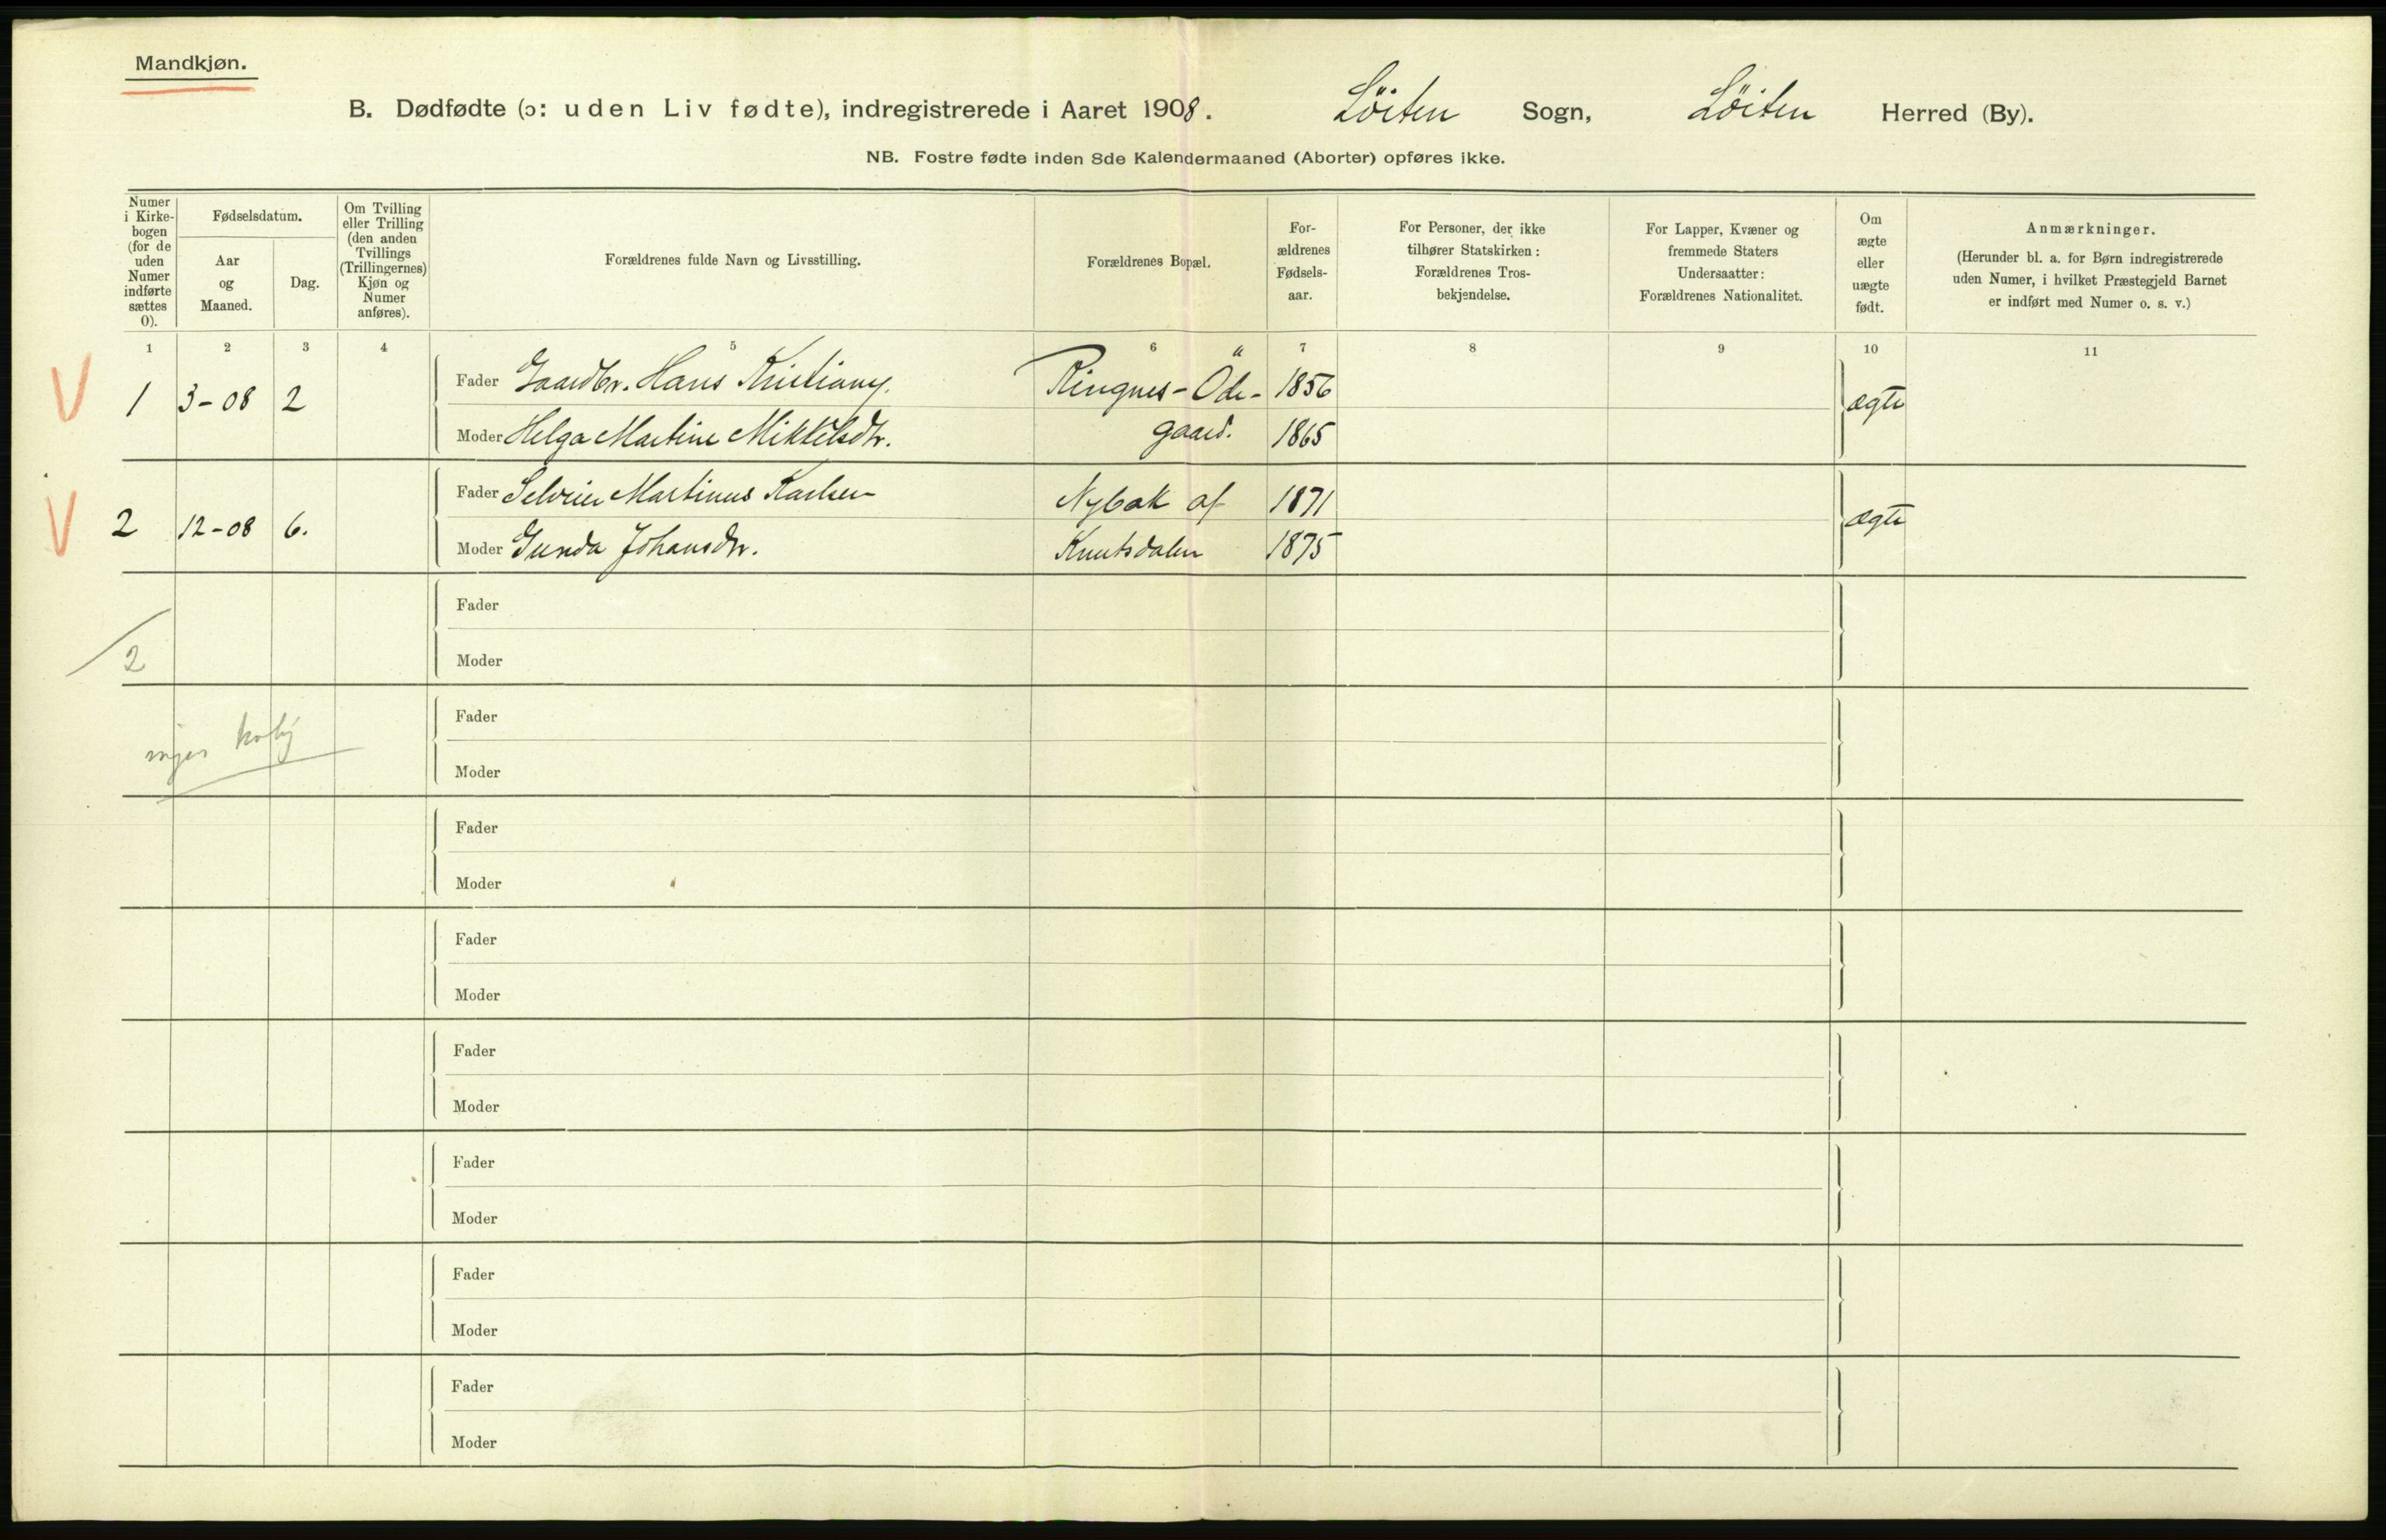 Mandkjøn.
B. Dødfødte (ɔ: uden Liv fødte), indregistrerede i Aaret 1908. Löiten Sogn, Löiten Herred (By).
NB. Fostre fødte inden 8de Kalendermaaned (Aborter) opføres ikke.
Numer i Kirke-bogen (for de uden Numer indførte sættes 0).
Fødselsdatum.
Aar og Maaned.
Dag.
Om Tvilling eller Trilling (den anden Tvillings (Trillingernes) Kjøn og Numer anføres).
Forældrenes fulde Navn og Livsstilling.
Forældrenes Bopæl.
For-ældrenes Fødsels-aar.
For Personer, der ikke tilhører Statskirken: Forældrenes Tros-bekjendelse.
For Lapper, Kvæner og fremmede Staters Undersaatter: Forældrenes Nationalitet.
Om ægte eller uægte født.
Anmærkninger.
(Herunder bl. a. for Børn indregistrerede uden Numer, i hvilket Præstegjeld Barnet er indført med Numer o. s. v.)
1 2 3 4 5 6 7 8 9 10 11
V 1 3-08 2 Fader Gaardbr. Hans Kristians. Ringnes-Öde- 1856 ægte
Moder Helga Martine Mikkelsdtr. gaard. 1865
V 2 12-08 6. Fader Selveier Martinus Karlsen Nybak af 1871 ægte
Moder Gunda Johansdtr. Knutsdalen 1875
Fader
2 Moder
Fader
Moder
Fader
Moder
Fader
Moder
Fader
Moder
Fader
Moder
Fader
Moder
Fader
Moder